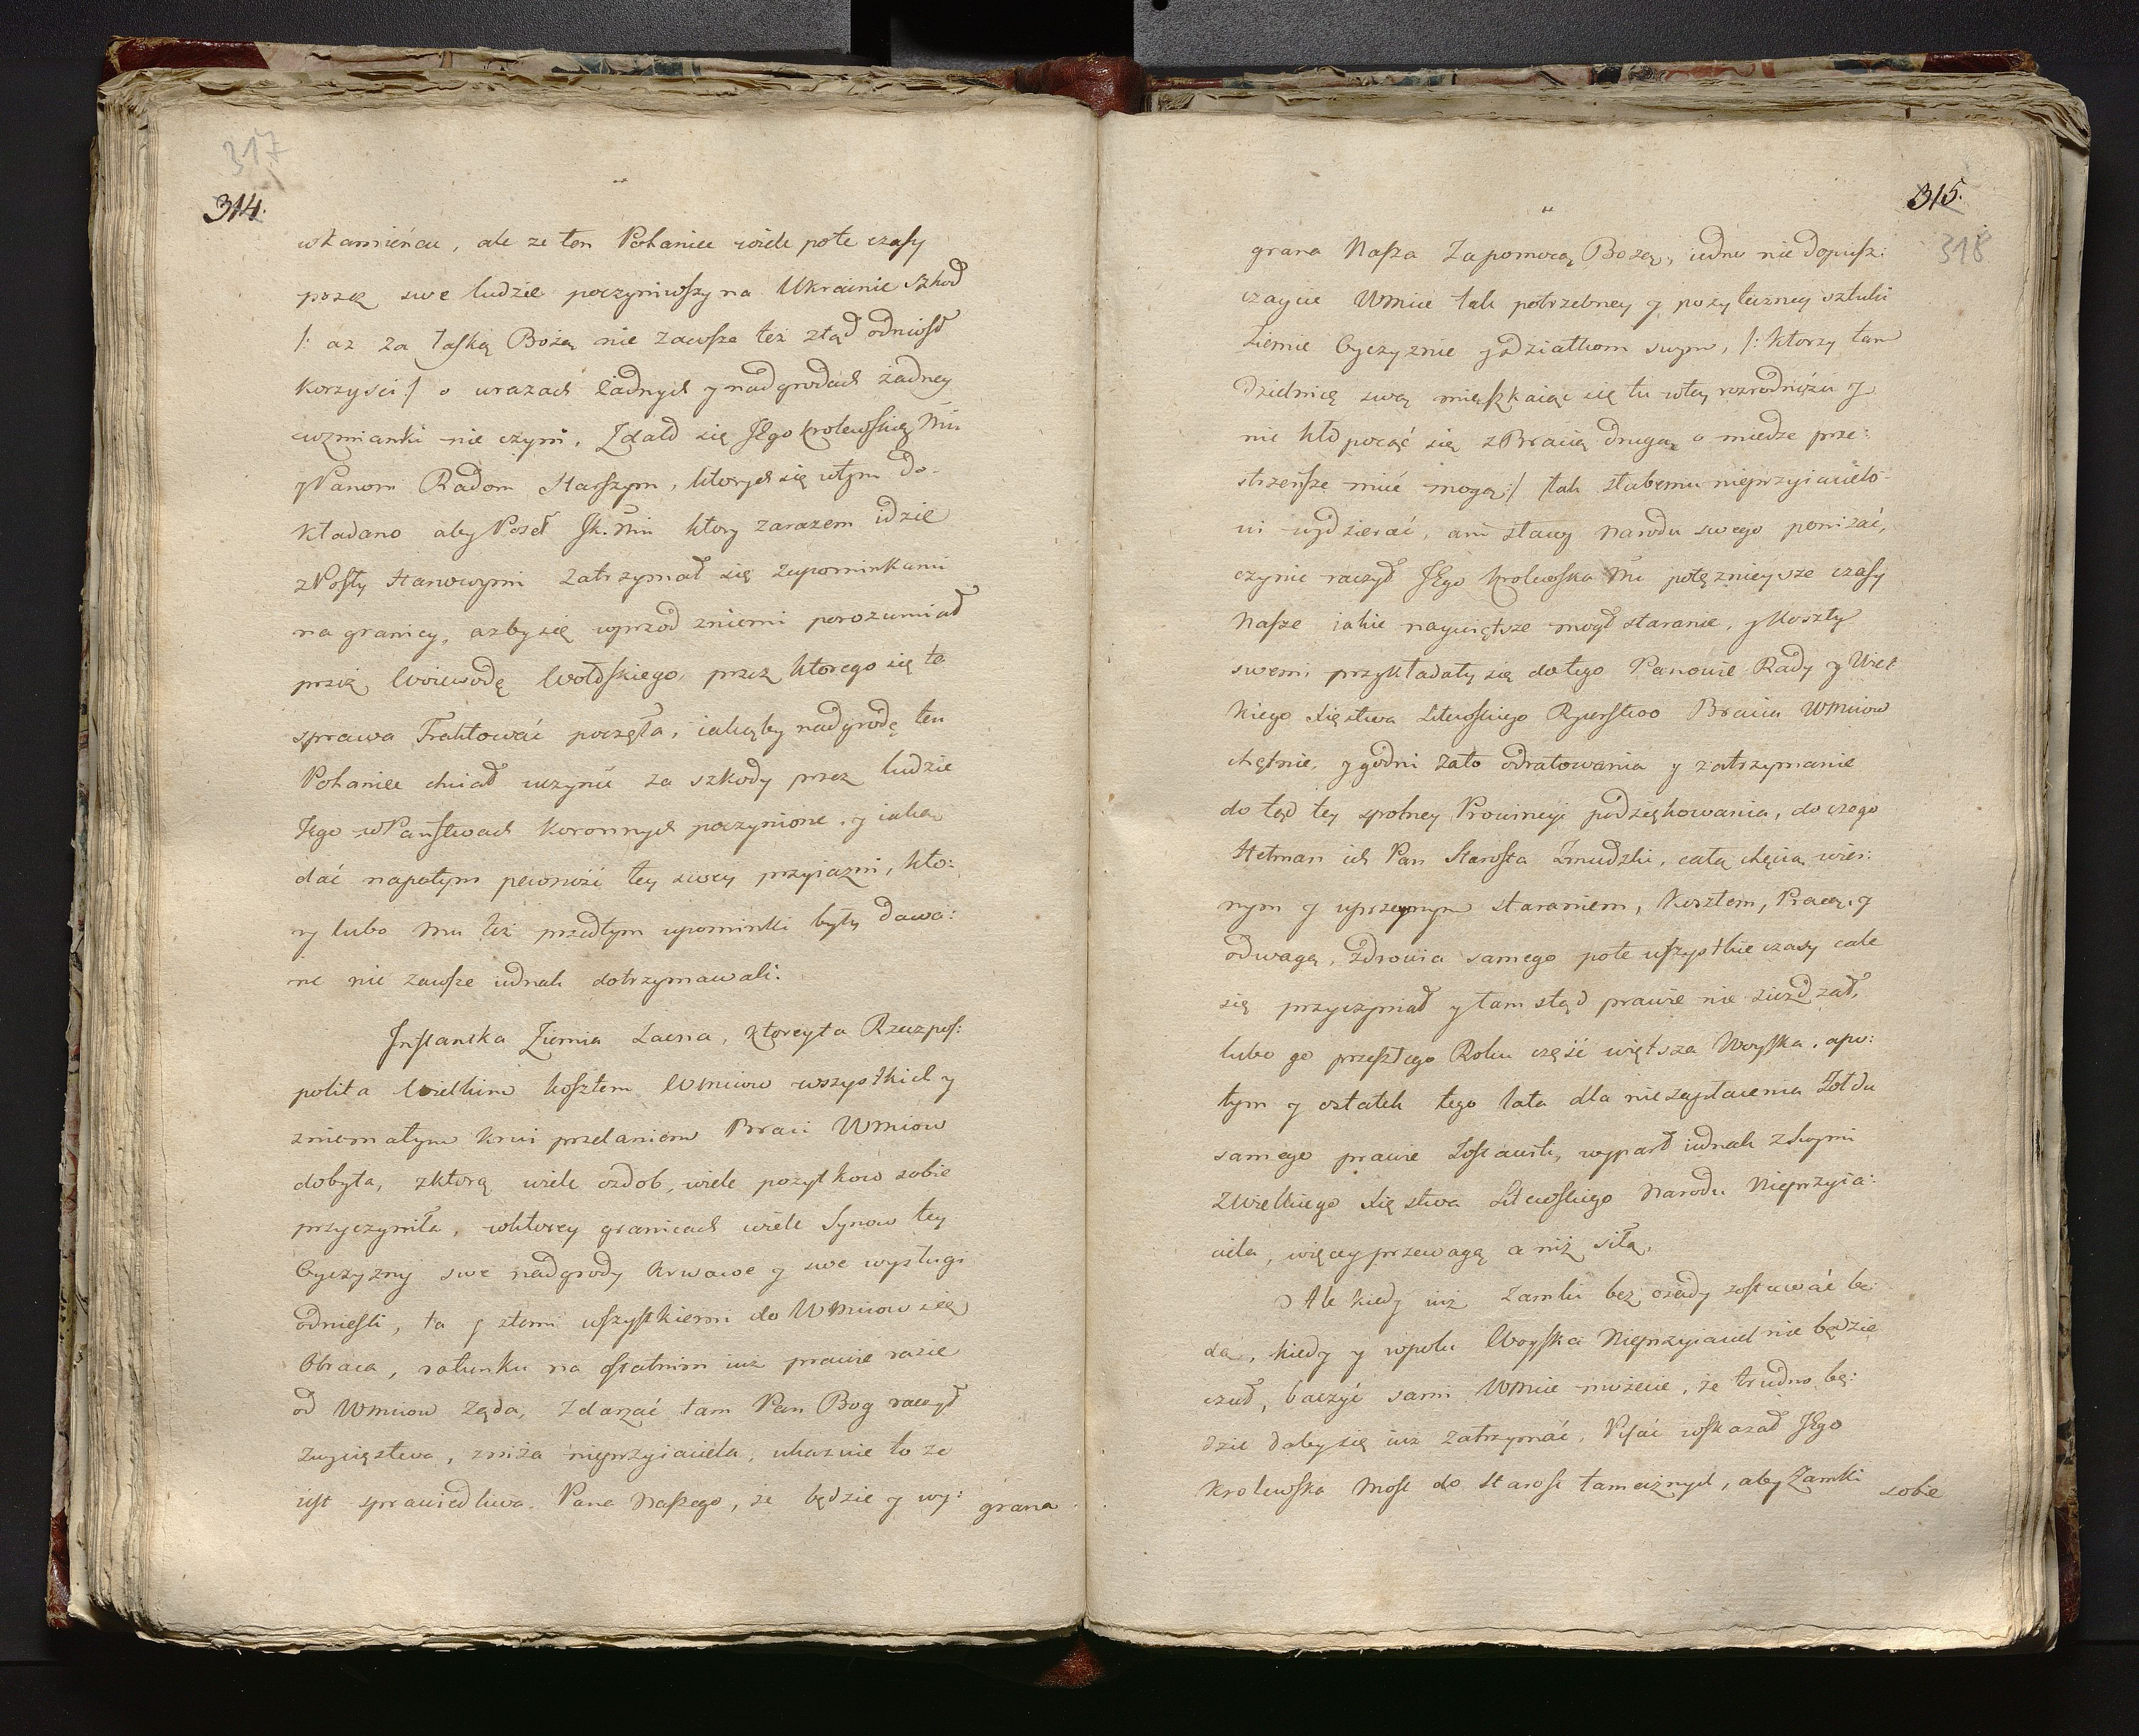 317
314.
wKamieńcu, ale ze ten Pohaniec wiele pote czasy
przez swe ludzie poczyniwszy na Ukrainie szkod
/: az za łaską Bożą nie zawsze też ztąd odniosł
korzysci :/ o urazach żadnych y nadgrodach żadney
wzmianki nie czyni. Zdało się JEgo krolewskiey Mci
y Panom Radom Starszym, ktorych się wtym do-
kładano aby Poseł Jk. Mci ktory zarazem idzie
z Posły Hanowymi zatrzymał się zupominkami
na granicy, azby się wprzod zniemi porozumiał
przez Woiewodę Wołoskiego, przez ktorego się ta
sprawa Traktować poczęła, iakąby nadgrodę ten
Pohaniec chciał uczynić za szkody przez ludzie
Jego w Państwach koronnych poczynione, y iaką
dać napotym pewność tey swey przyiazni, kto:
ry lubo mu też przedtym upominki były dawa:
ne nie zawsze iednak dotrzymawali.
Inflantska Ziemia zacna, ktoreyta Rzeczpos:
polita Wielkim kosztem WMciow wszystkich y
zniemałym krwi przelaniem Braci WMciow
dobyta, zktorą wiele ozdob, wiele pozytkow sobie
przyczyniła, wktorey granicach wiele Synow tey
Oyczyzny swe nadgrody krwawe y swe wysługi
odniesli, ta y ztemi wszystkiemi do WMciow się
obraca, ratunku na ostatnim iuż prawie razie
od WMciow żąda, Zdarzać tam Pan Bog raczył
zwycięstwa, zniża nieprzyiaciela, ukazuie to ze
iest sprawiedliwa Pana Naszego, że będzie y wy:
grana
315.
318
grana Nasza Zapomocą Bożą, iedno nie dopusz:
czaycie WMcie tak potrzebney y pozyteczney sztuki
ziemie Oyczyznie y dziatkom swym, /: Ktorzy tam
dzielnicę swą mieszkaiąc się tu wtey rozrodności y
nie kłopocąc się z Bracią drugą o miedze prze:
strzeńsze mieć mogą :/ tak słabemu nieprzyiacielo-
wi wydzierać, ani sławy Narodu swego poniżać,
czynić raczył JEgo krolewska Mć potężnieysze czasy
Nasze iakie naywiętsze mogł staranie, y koszty
swemi przykładały się do tego Panowie Rady y Wiel
kiego Xięstwa Litewskiego Rycerstwo Bracia WMciow
chętnie, y godni zato odratowania y zatrzymanie
do tąd tey spolney Prowincyi podziękowania, do czego
Hetman ich Pan Starosta Żmudzki, całą chęcią, wier:
nym y uprzeymym staraniem, Kosztem, Pracą, y
odwagą, zdrowia samego pote wszystkie czasy cale
się przyczyniał y tam stąd prawie nie ziezdzał,
lubo go przeszłego Roku część większa Woyska, apo:
tym y ostatek tego lata dla niezapłacenia Żołdu
samego prawie zostawili, wyparł iednak zInymi
z Wielkiego Xięstwa Litewskiego Narodu Nieprzyia:
ciela, więcey przewagą a niż siłą.
Ale kiedy iuż Zamki bez osady zostawać bę:
dą, kiedy y wpolu Woyska Nieprzyiaciel nie będzie
czuł, baczyć sami WMcie możecie, że trudno bę:
dzie daley się iuż zatrzymać, Pisać wskazał JEgo
krolewska Mość do Starost tamecznych, aby Zamki
sobie